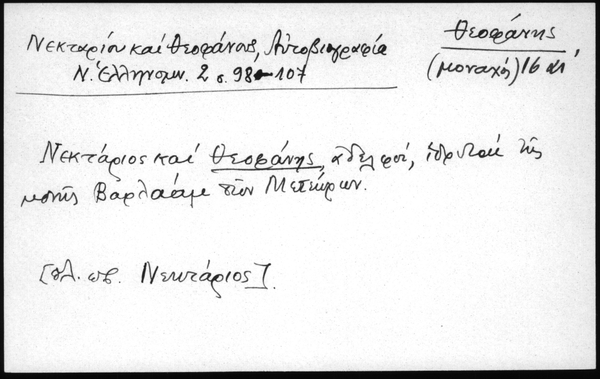 Θεοφάνης
(μοναχός) 16 αι.
Νεκταρίου καί Θεοφάνους, Αὐτοβιογραφία
Ν. Ἑλληνομν. 2 σ. 98-107
Νεκτάριος καί Θεοφάνης, ἀδελφοί, ἱδρυταί τῆς
μονῆς Βαρλαάμ τῶν Μετεώρων.
[πλ. πρ. Νεκτάριος].